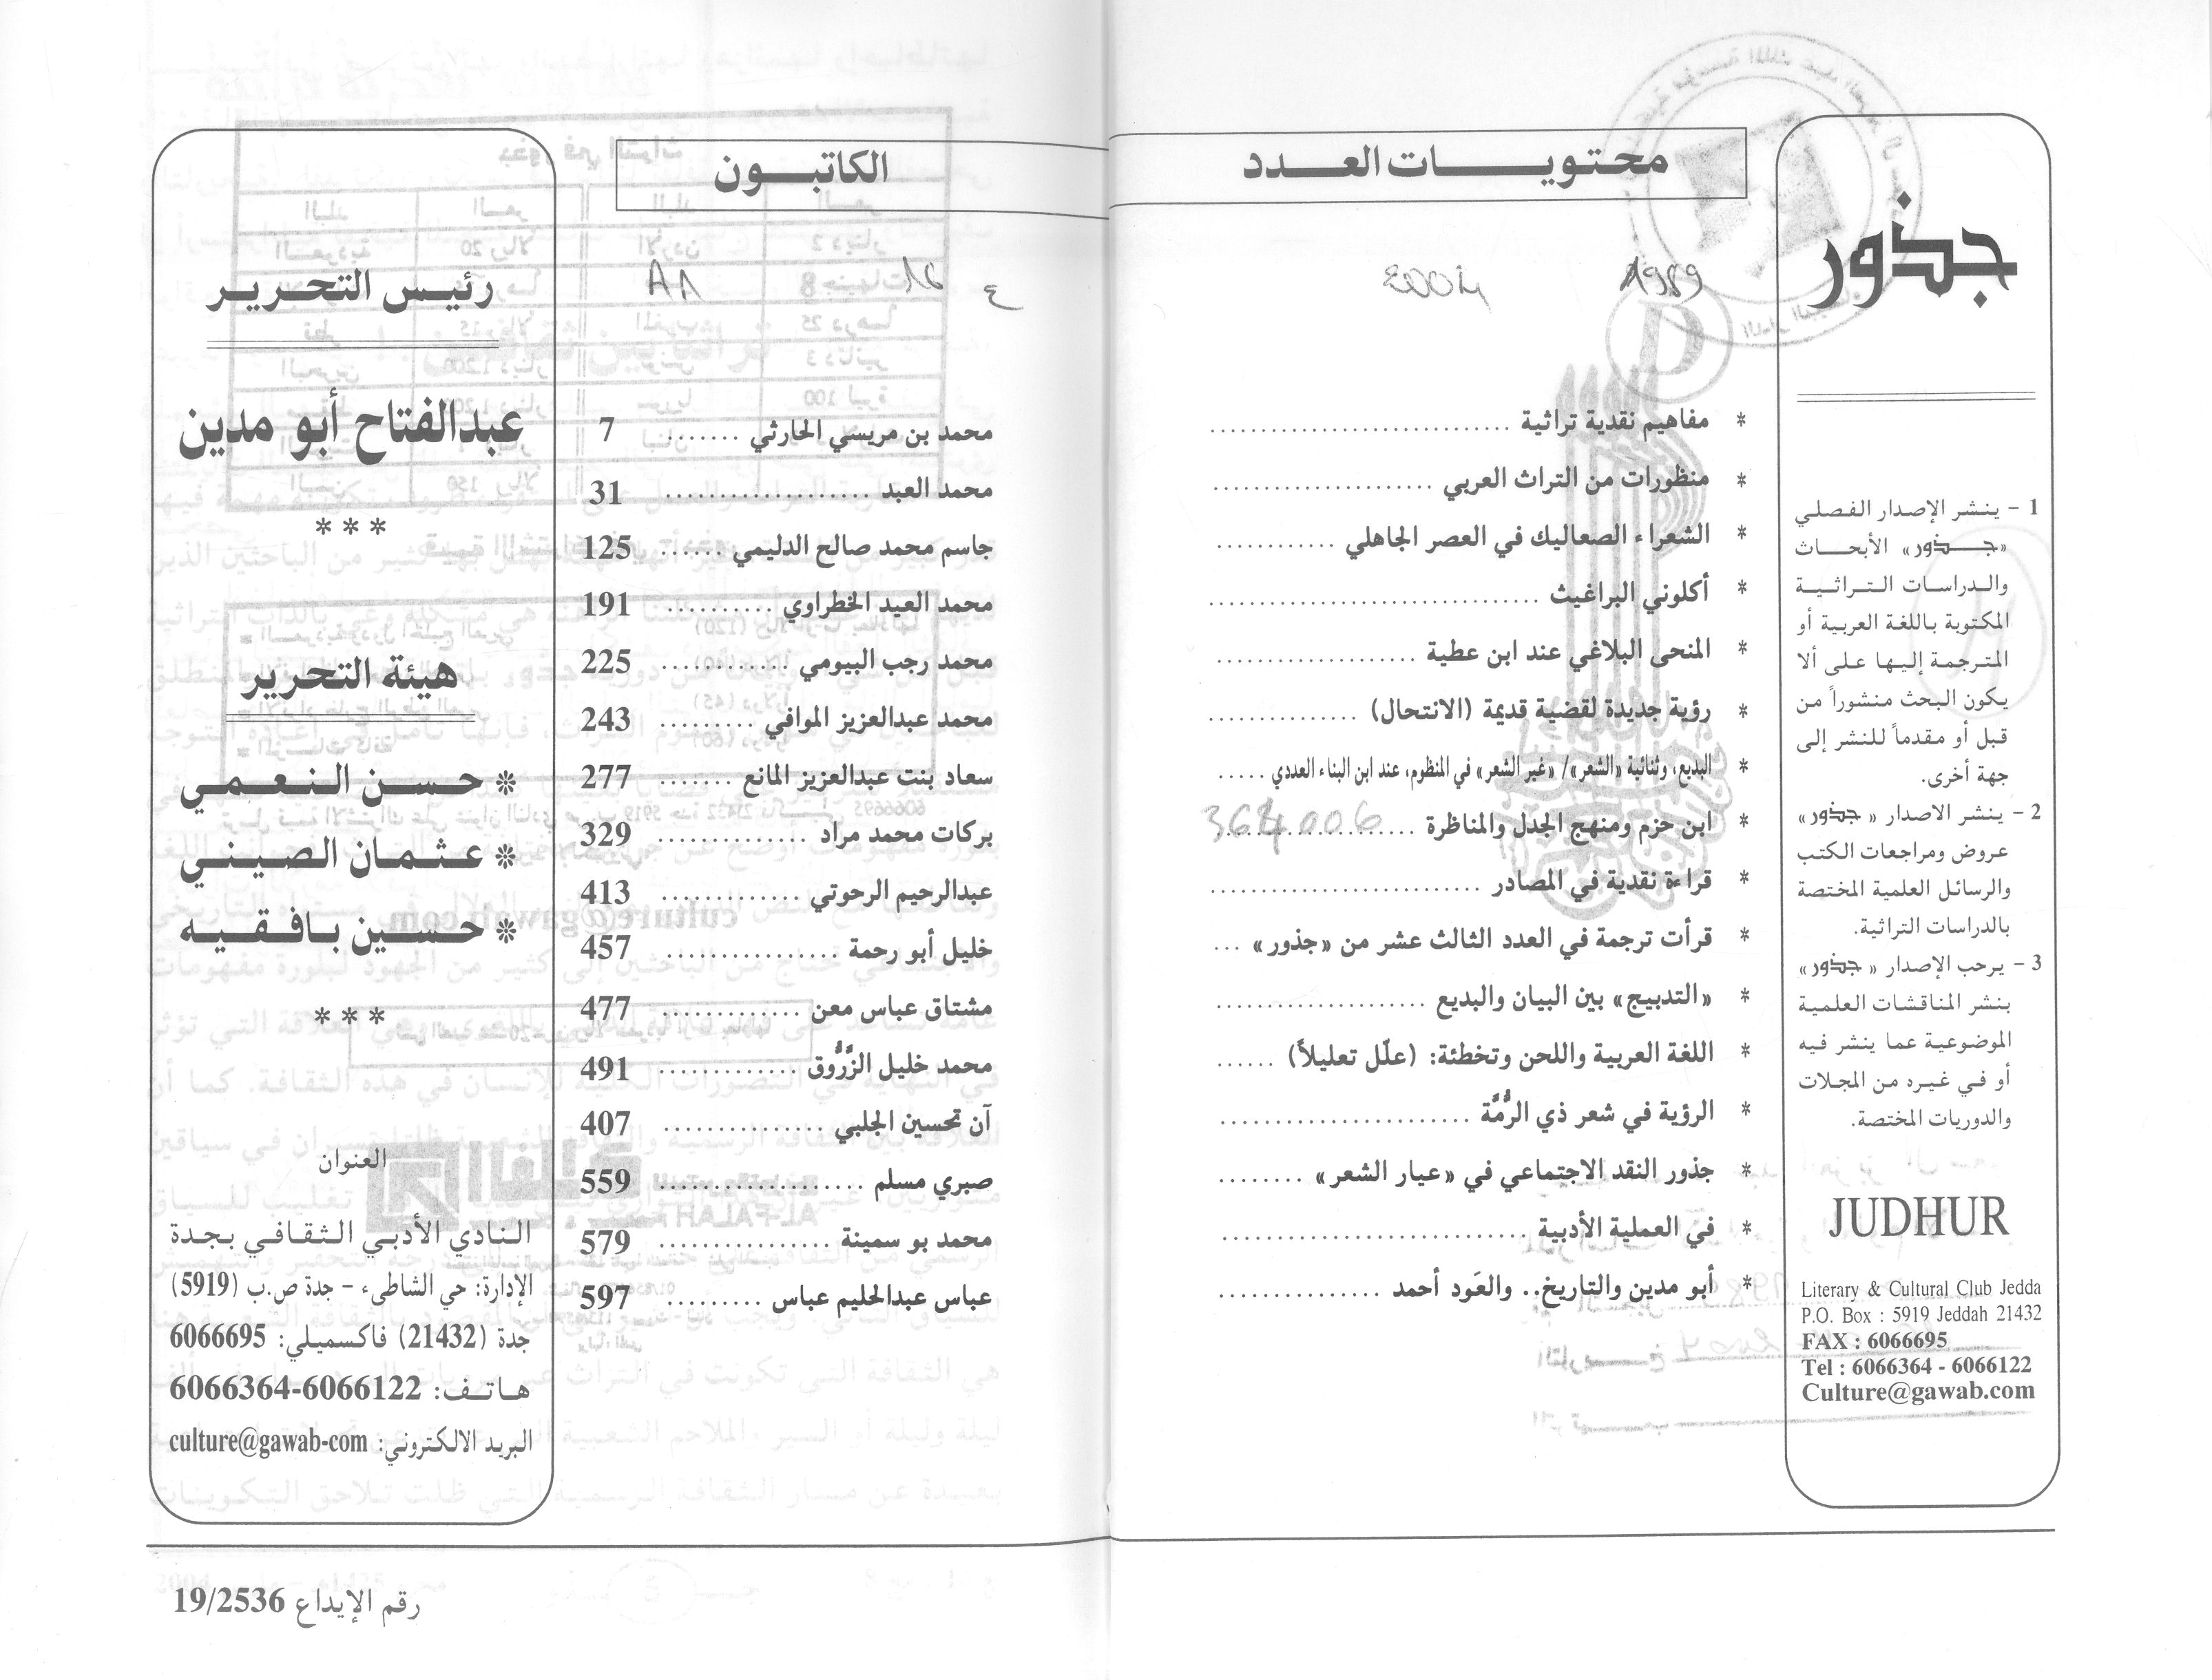 جذور
1 - ينشر الإصدار الفصلي
«جذور» الأبحاث
والدراسات التراثية
المكتوبة باللغة العربية أو
المترجمة إليها على ألا
يكون البحث منشوراً من
قبل أو مقدماً للنشر إلى
جهة أخرى.
2 - ينشر الاصدار «جذور»
عروض ومراجعات الكتب
والرسائل العلمية المختصة
بالدراسات التراثية.
3 - يرحب الإصدار «جذور»
بنشر المناقشات العلمية
الموضوعية عما ينشر فيه
أو في غيره من المجلات
والدوريات المختصة.
JUDHUR
Literary & Cultural Club Jedda
P.O. Box : 5919 Jeddah 21432
FAX : 6066695
Tel : 6066364 - 6066122
Culture@gawab.com
محتويات العدد الكاتبون
1989
* مفاهيم نقدية تراثية ........ محمد بن مريسي الحارثي ....... 7
* منظورات من التراث العربي ........ محمد العبد ....... 31
* الشعراء الصعاليك في العصر الجاهلي ........ جاسم محمد صالح الدليمي ...... 125
* أكلوني البراغيث ........ محمد العيد الخطراوي ....... 191
* المنحى البلاغي عند ابن عطية ........ محمد رجب البيومي ....... 225
* رؤية جديدة لقضية قديمة (الانتحال) ........ محمد عبدالعزيز الموافي ....... 243
* البديع، وثنائية «الشعر»/ «غير الشعر» في المنظوم، عند ابن البناء العددي ..... سعاد بنت عبدالعزيز المانع ....... 277
* ابن حزم ومنهج الجدل والمناظرة ........ بركات محمد مراد ....... 329
364006
* قراءة نقدية في المصادر ........ عبدالرحيم الرحوتي ....... 413
* قرأت ترجمة في العدد الثالث عشر من «جذور» ... خليل أبو رحمة ....... 457
* «التدبيج» بين البيان والبديع ........ مشتاق عباس معن ....... 477
* اللغة العربية واللحن وتخطئة: (علّل تعليلاً) ...... محمد خليل الزَّرُّوق ....... 491
* الرؤية في شعر ذي الرُّمَّة ........ آن تحسين الجلبي ....... 407
* جذور النقد الاجتماعي في «عيار الشعر» ........ صبري مسلم ....... 559
* في العملية الأدبية ........ محمد بو سمينة ....... 579
* أبو مدين والتاريخ.. والعَود أحمد ........ عباس عبدالحليم عباس ....... 597
رئيس التحرير
عبدالفتاح أبو مدين
***
هيئة التحرير
* حسن النعمي
* عثمان الصيني
* حسين بافقيه
***
العنوان
النادي الأدبي الثقافي بجدة
الإدارة: حي الشاطىء - جدة ص.ب (5919)
جدة (21432) فاكسميلي: 6066695
هاتف: 6066122-6066364
البريد الالكتروني: culture@gawab-com
رقم الإيداع 19/2536